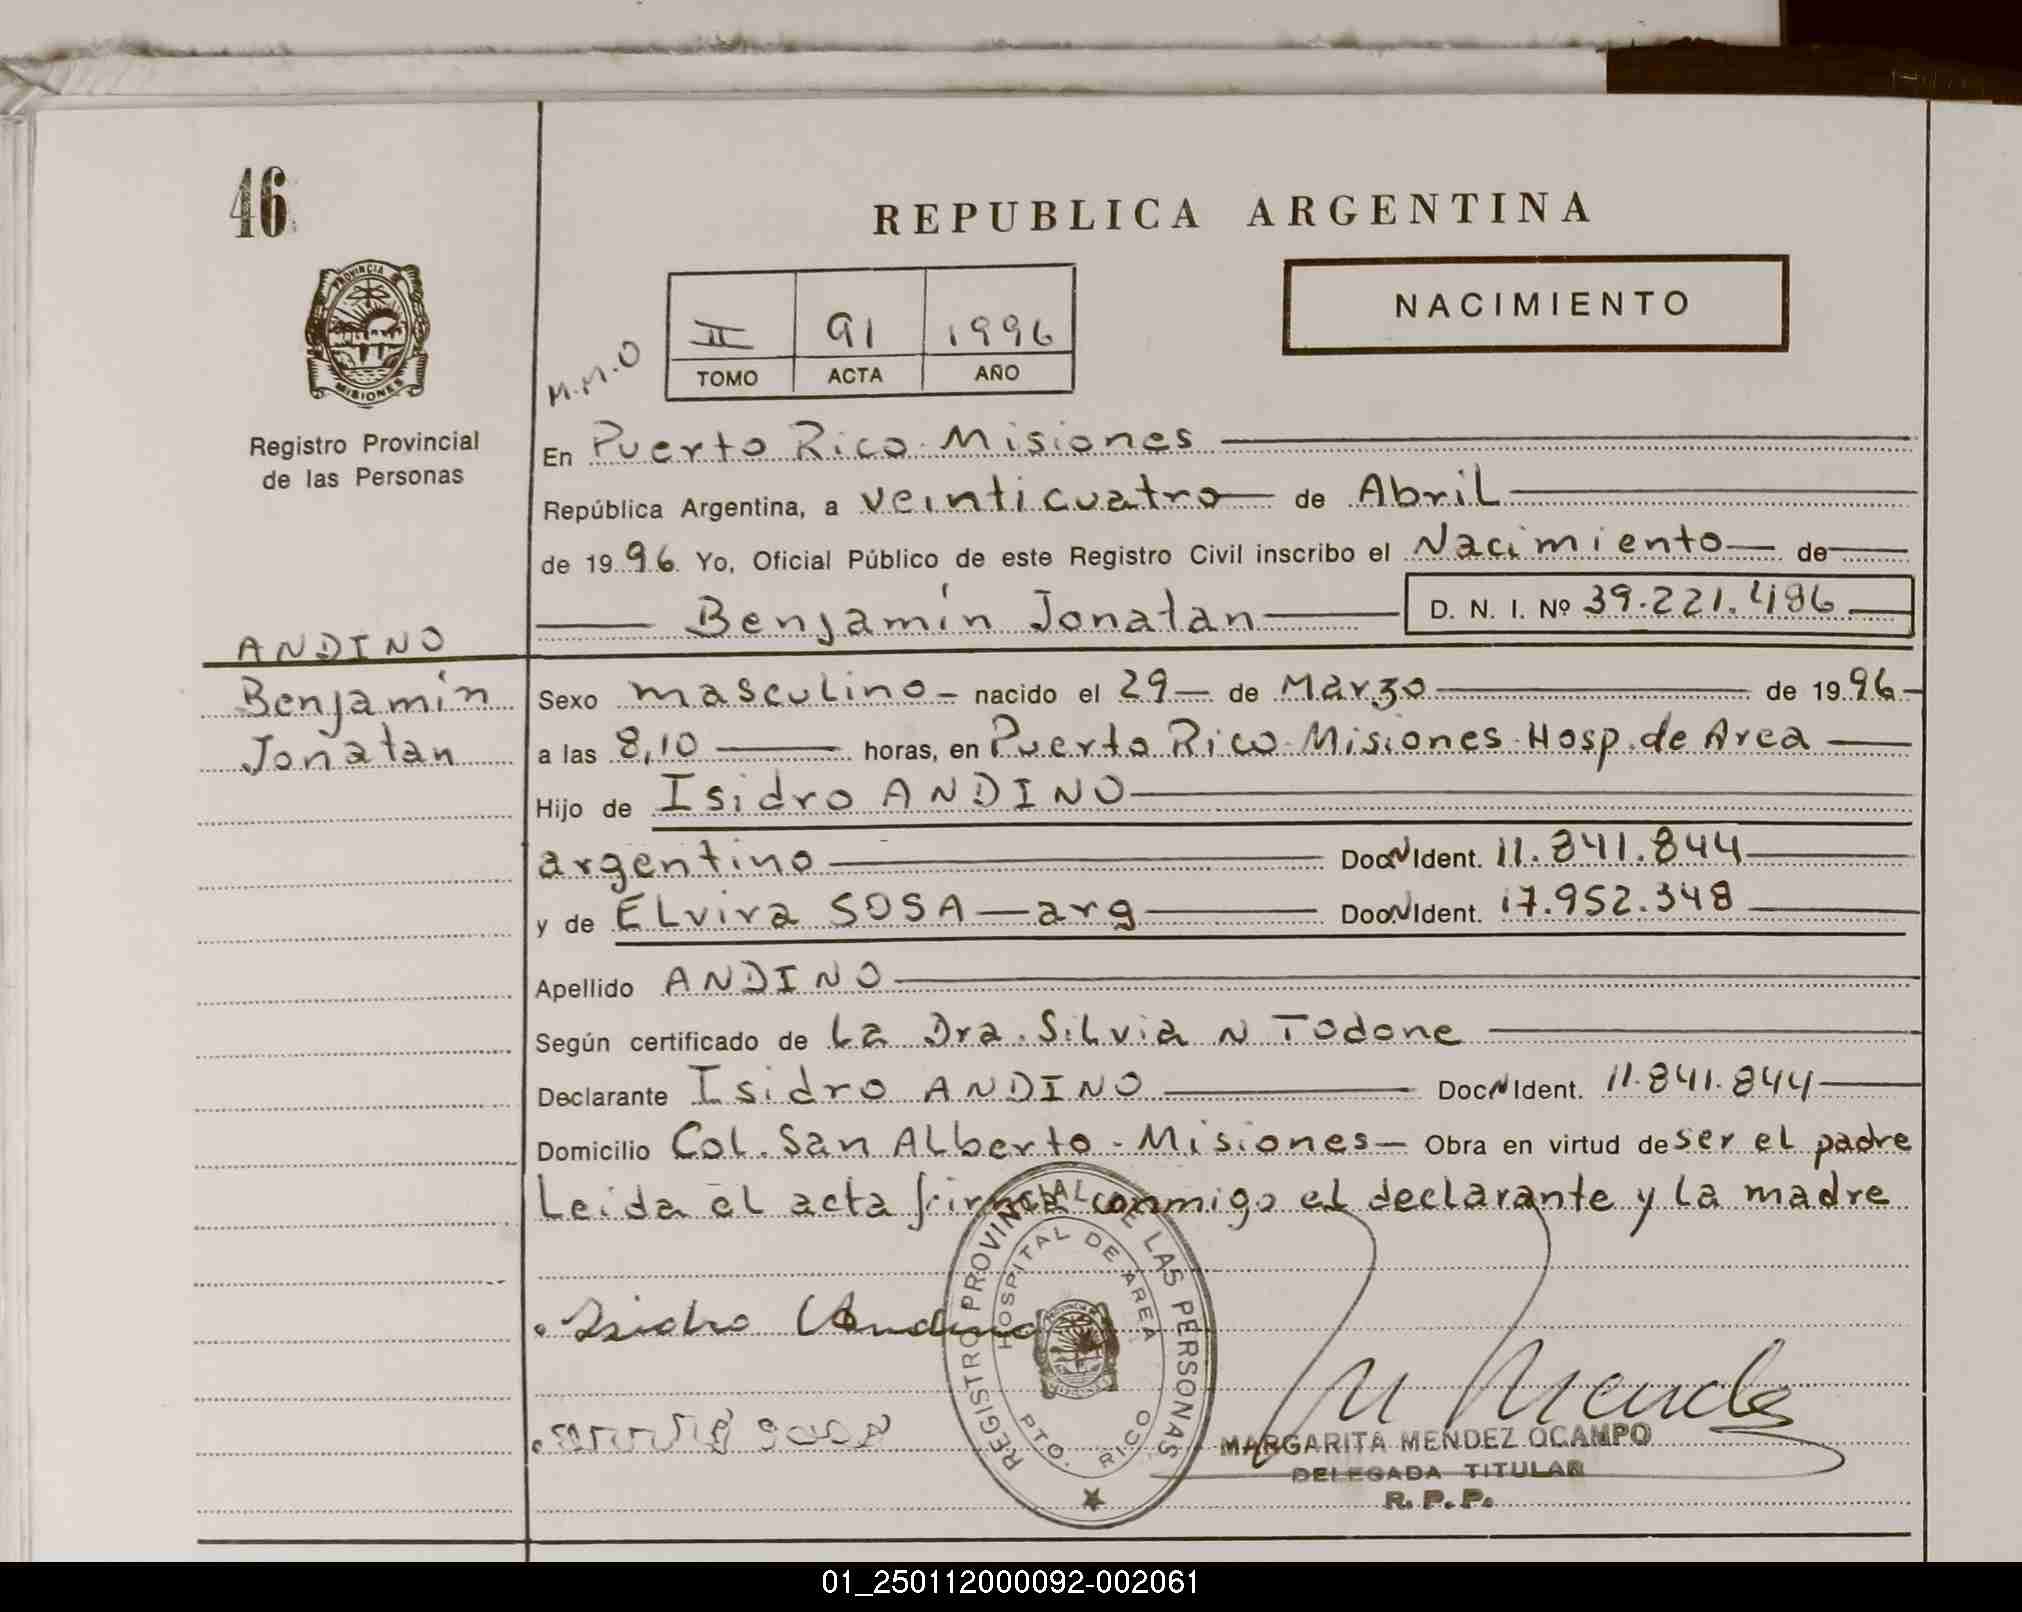 46
REPUBLICA ARGENTINA
PROVINCIA
MISIONES
NACIMIENTO
II 91 1996
TOMO ACTA AÑO
M.M.O
Registro Provincial
de las Personas
En Puerto Rico. Misiones
República Argentina, a veinticuatro de Abril
de 1996 Yo, Oficial Público de este Registro Civil inscribo el Nacimiento de
Benjamín Jonatan D. N. I. Nº 39.221.486
ANDINO
Benjamín
Jonatan
Sexo masculino nacido el 29 de Marzo de 1996
a las 8,10 horas, en Puerto Rico. Misiones. Hosp. de Area
Hijo de Isidro ANDINO
argentino Doc. N Ident. 11.841.844
y de Elvira SOSA — arg Doc. N Ident. 17.952.348
Apellido ANDINO
Según certificado de La Dra. Silvia N Todone
Declarante Isidro ANDINO Doc. N Ident. 11.841.844
Domicilio Col. San Alberto - Misiones — Obra en virtud de ser el padre
Leida el acta firma conmigo el declarante y la madre
REGISTRO PROVINCIAL DE LAS PERSONAS
HOSPITAL DE AREA
PTO. RICO
Isidro Andino
M Mendez
MARGARITA MENDEZ OCAMPO
DELEGADA TITULAR
R. P. P.
01_250112000092-002061